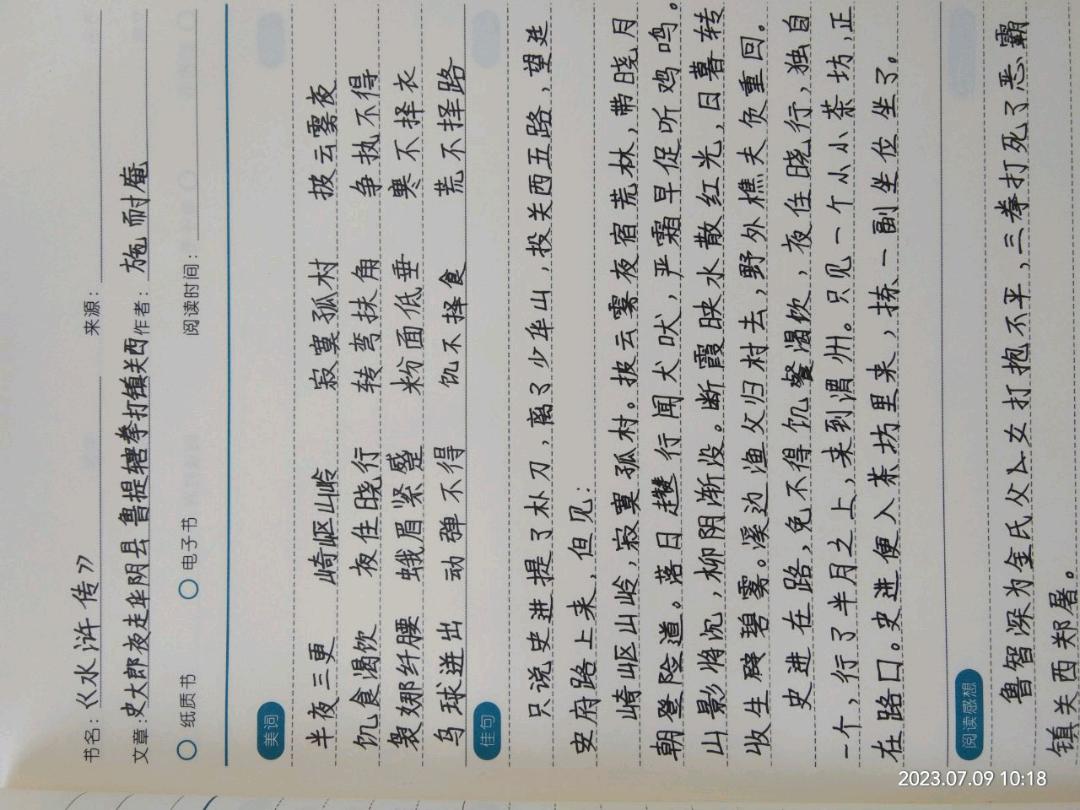 书名：《水浒传》 来源：
文章：史大郎夜走华阴县 鲁提辖拳打镇关西 作者：施耐庵
○ 纸质书 ○ 电子书 阅读时间：
美词
半夜三更 崎岖山岭 寂寞孤村 披云雾夜
饥食渴饮 夜住晓行 转弯扶角 争执不得
袅娜纤腰 蛾眉紧蹙 粉面低垂 寒不择衣
乌球迸出 动弹不得 饥不择食 荒不择路
佳句
只说史进提了朴刀，离了少华山，投关西五路，望延
安府路上来，但见：
崎岖山岭，寂寞孤村。披云雾夜宿荒林，带晓月
朝登险道。落日趱行闻犬吠，严霜早促听鸡鸣。
山影将沉，柳阴渐没。断霞映水散红光，日暮转
收生碧雾。溪边渔父归村去，野外樵夫负重回。
史进在路，免不得饥餐渴饮，夜住晓行，独自
一个，行了半月之上，来到渭州。只见一个小小茶坊，正
在路口。史进便入茶坊里来，拣一副坐位坐了。
阅读感想
鲁智深为金氏父女打抱不平，三拳打死了恶霸
镇关西郑屠。
2023.07.09 10:18